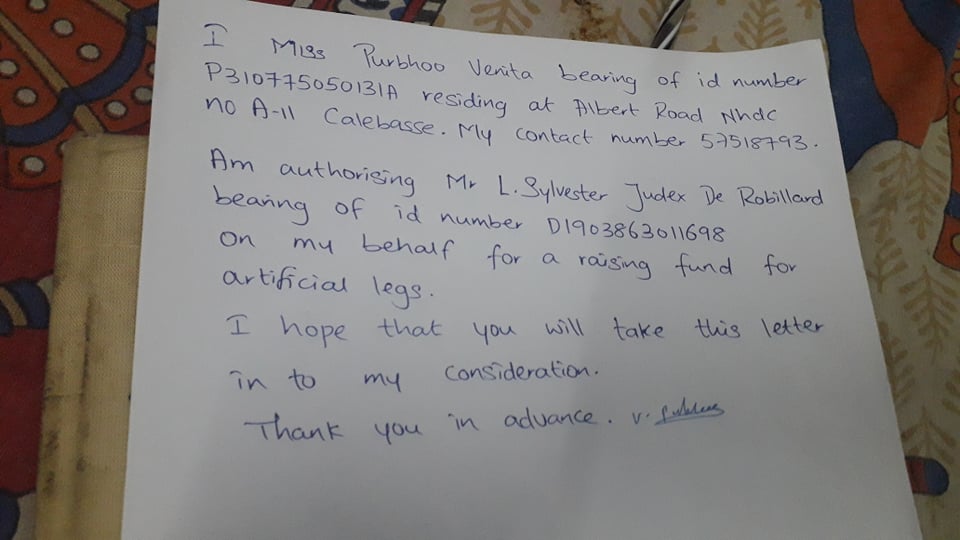 I Miss Purbhoo Venita bearing of id number
P310775050131A residing at Albert Road Nhdc
no A-11 Calebasse. My contact number 57518793.
Am authorising Mr L. Sylvester Judex De Robillard
bearing of id number D1903863011698
on my behalf for a raising fund for
artificial legs.
I hope that you will take this letter
in to my consideration.
Thank you in advance. V.